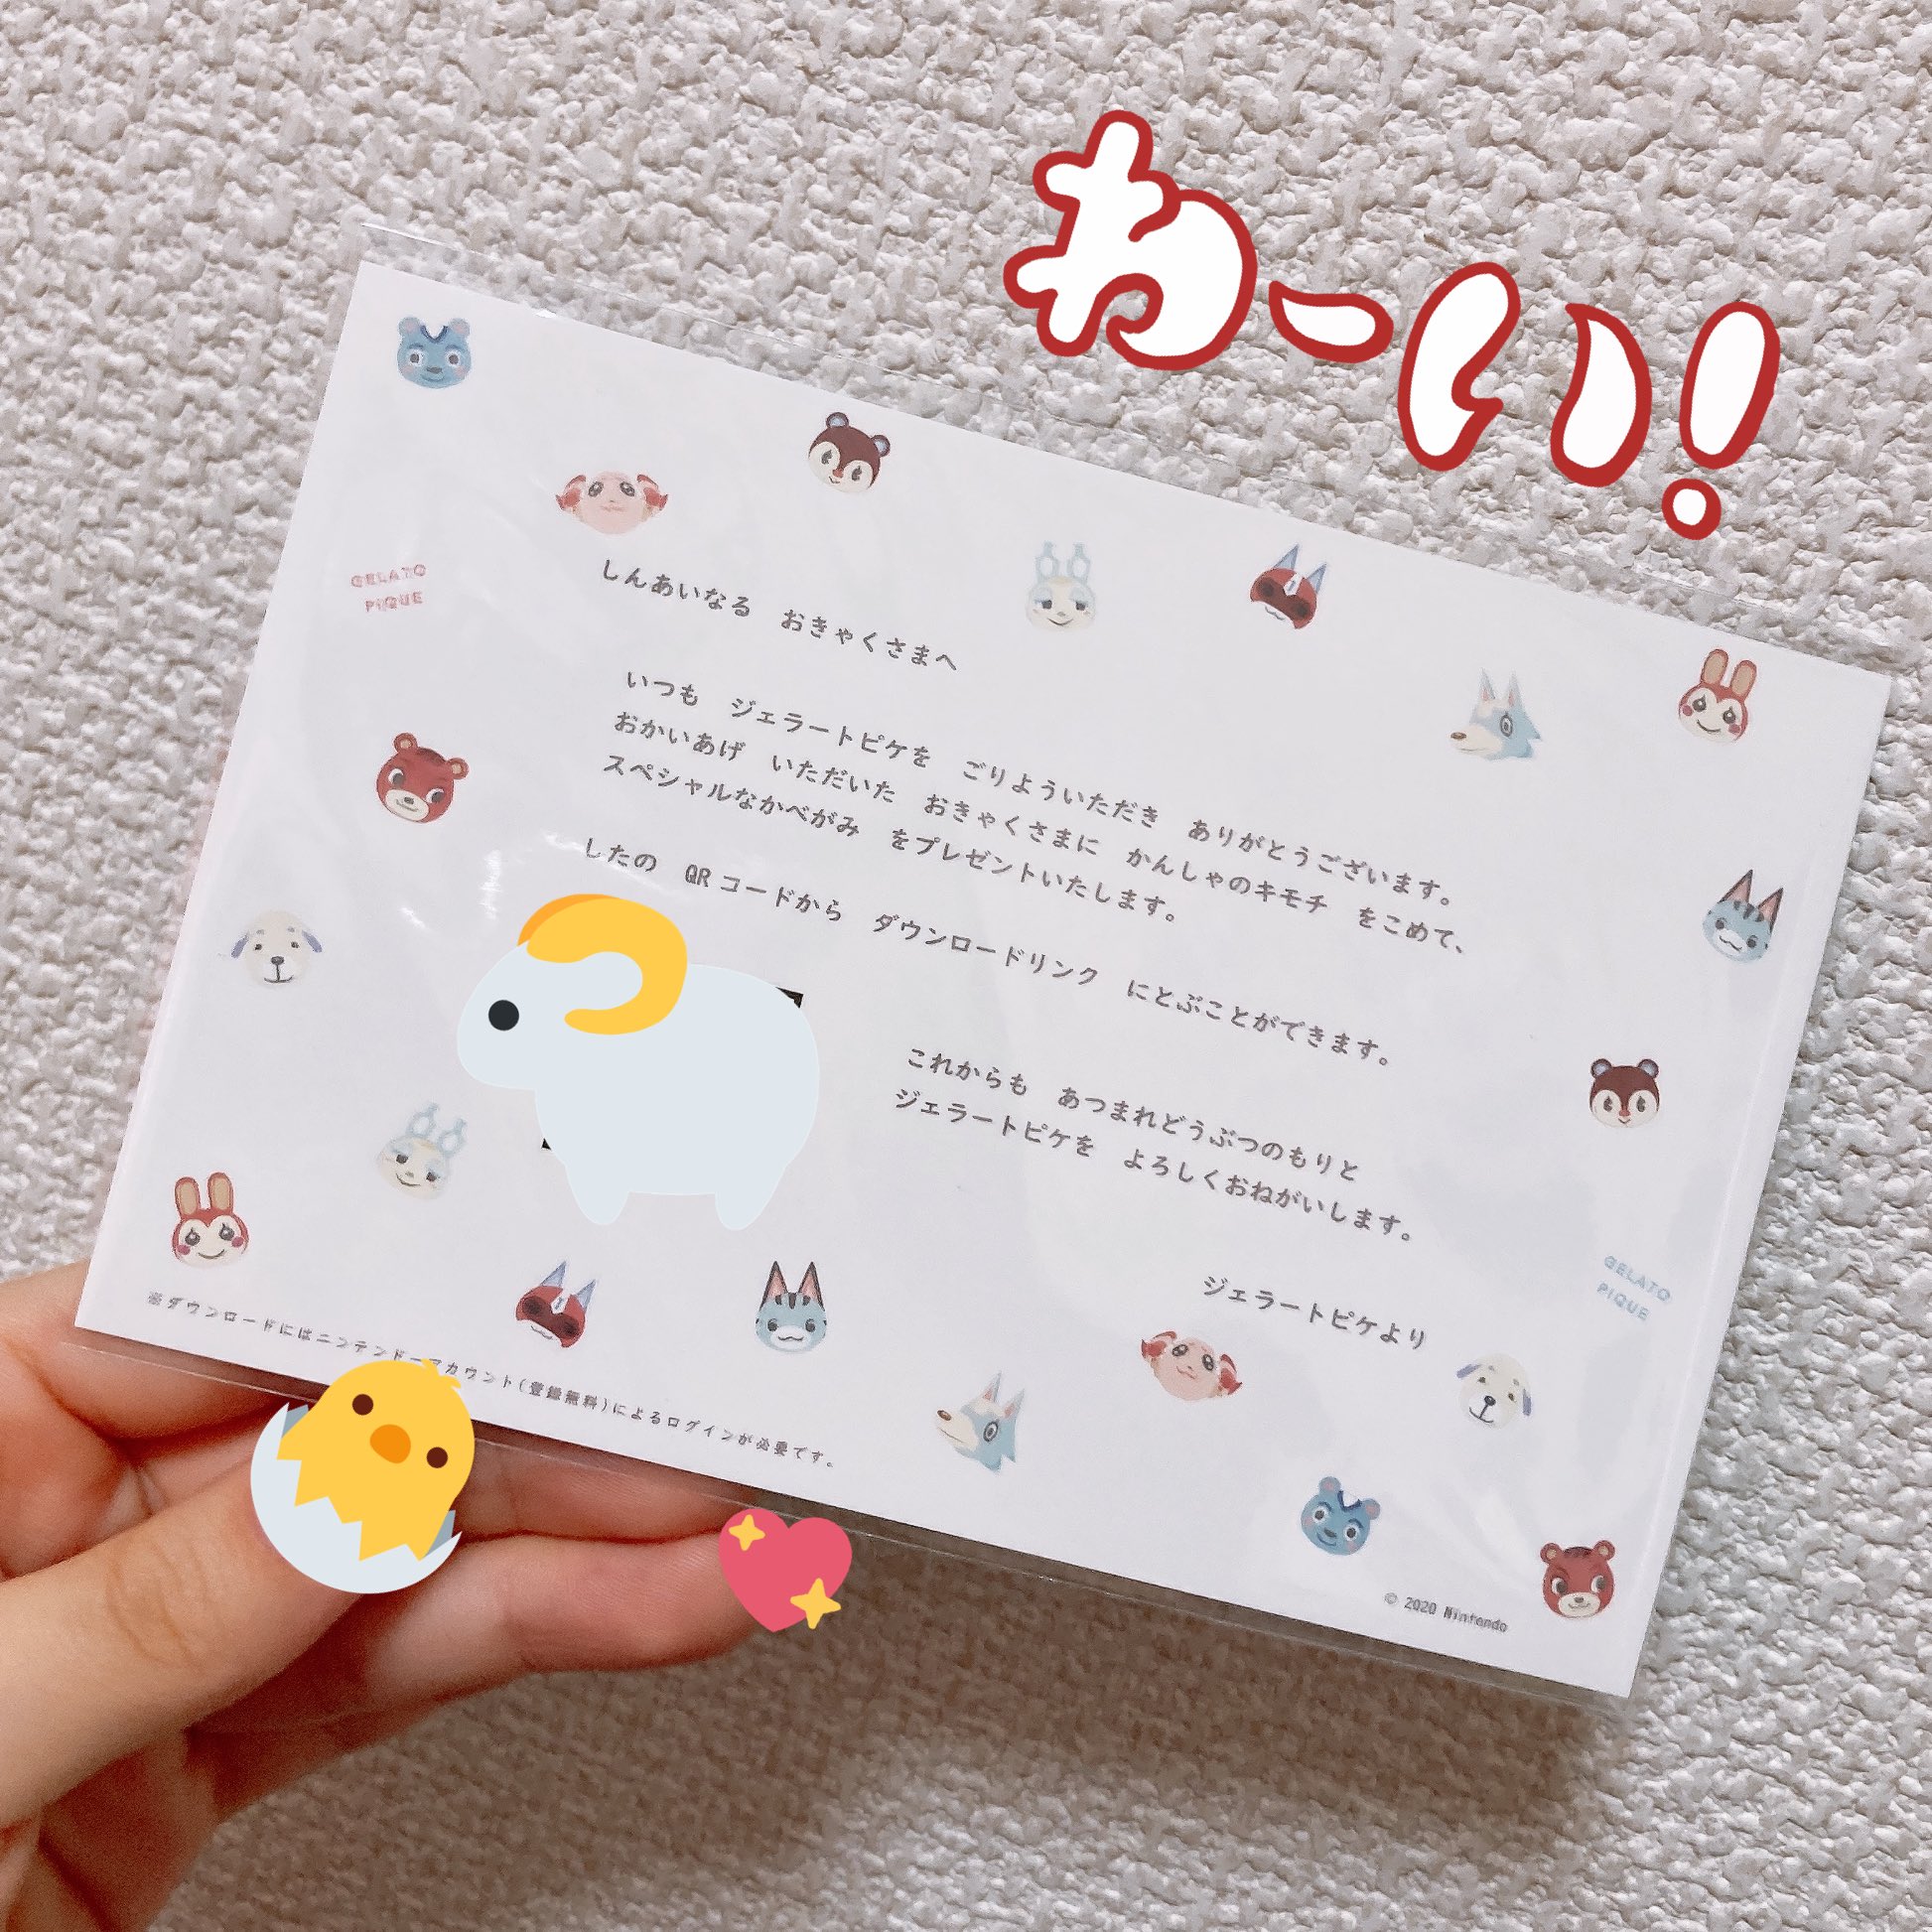 わーい!
GELATO
PIQUE
しんあいなる おきゃくさまへ
いつも ジェラートピケを ごりよういただき ありがとうございます。
おかいあげ いただいた おきゃくさまに かんしゃのキモチ をこめて、
スペシャルなかべがみ をプレゼントいたします。
したの QRコードから ダウンロードリンク にとぶことができます。
これからも あつまれどうぶつのもりと
ジェラートピケを よろしくおねがいします。
ジェラートピケより
GELATO
PIQUE
※ダウンロードにはニンテンドーアカウント(登録無料)によるログインが必要です。
© 2020 Nintendo